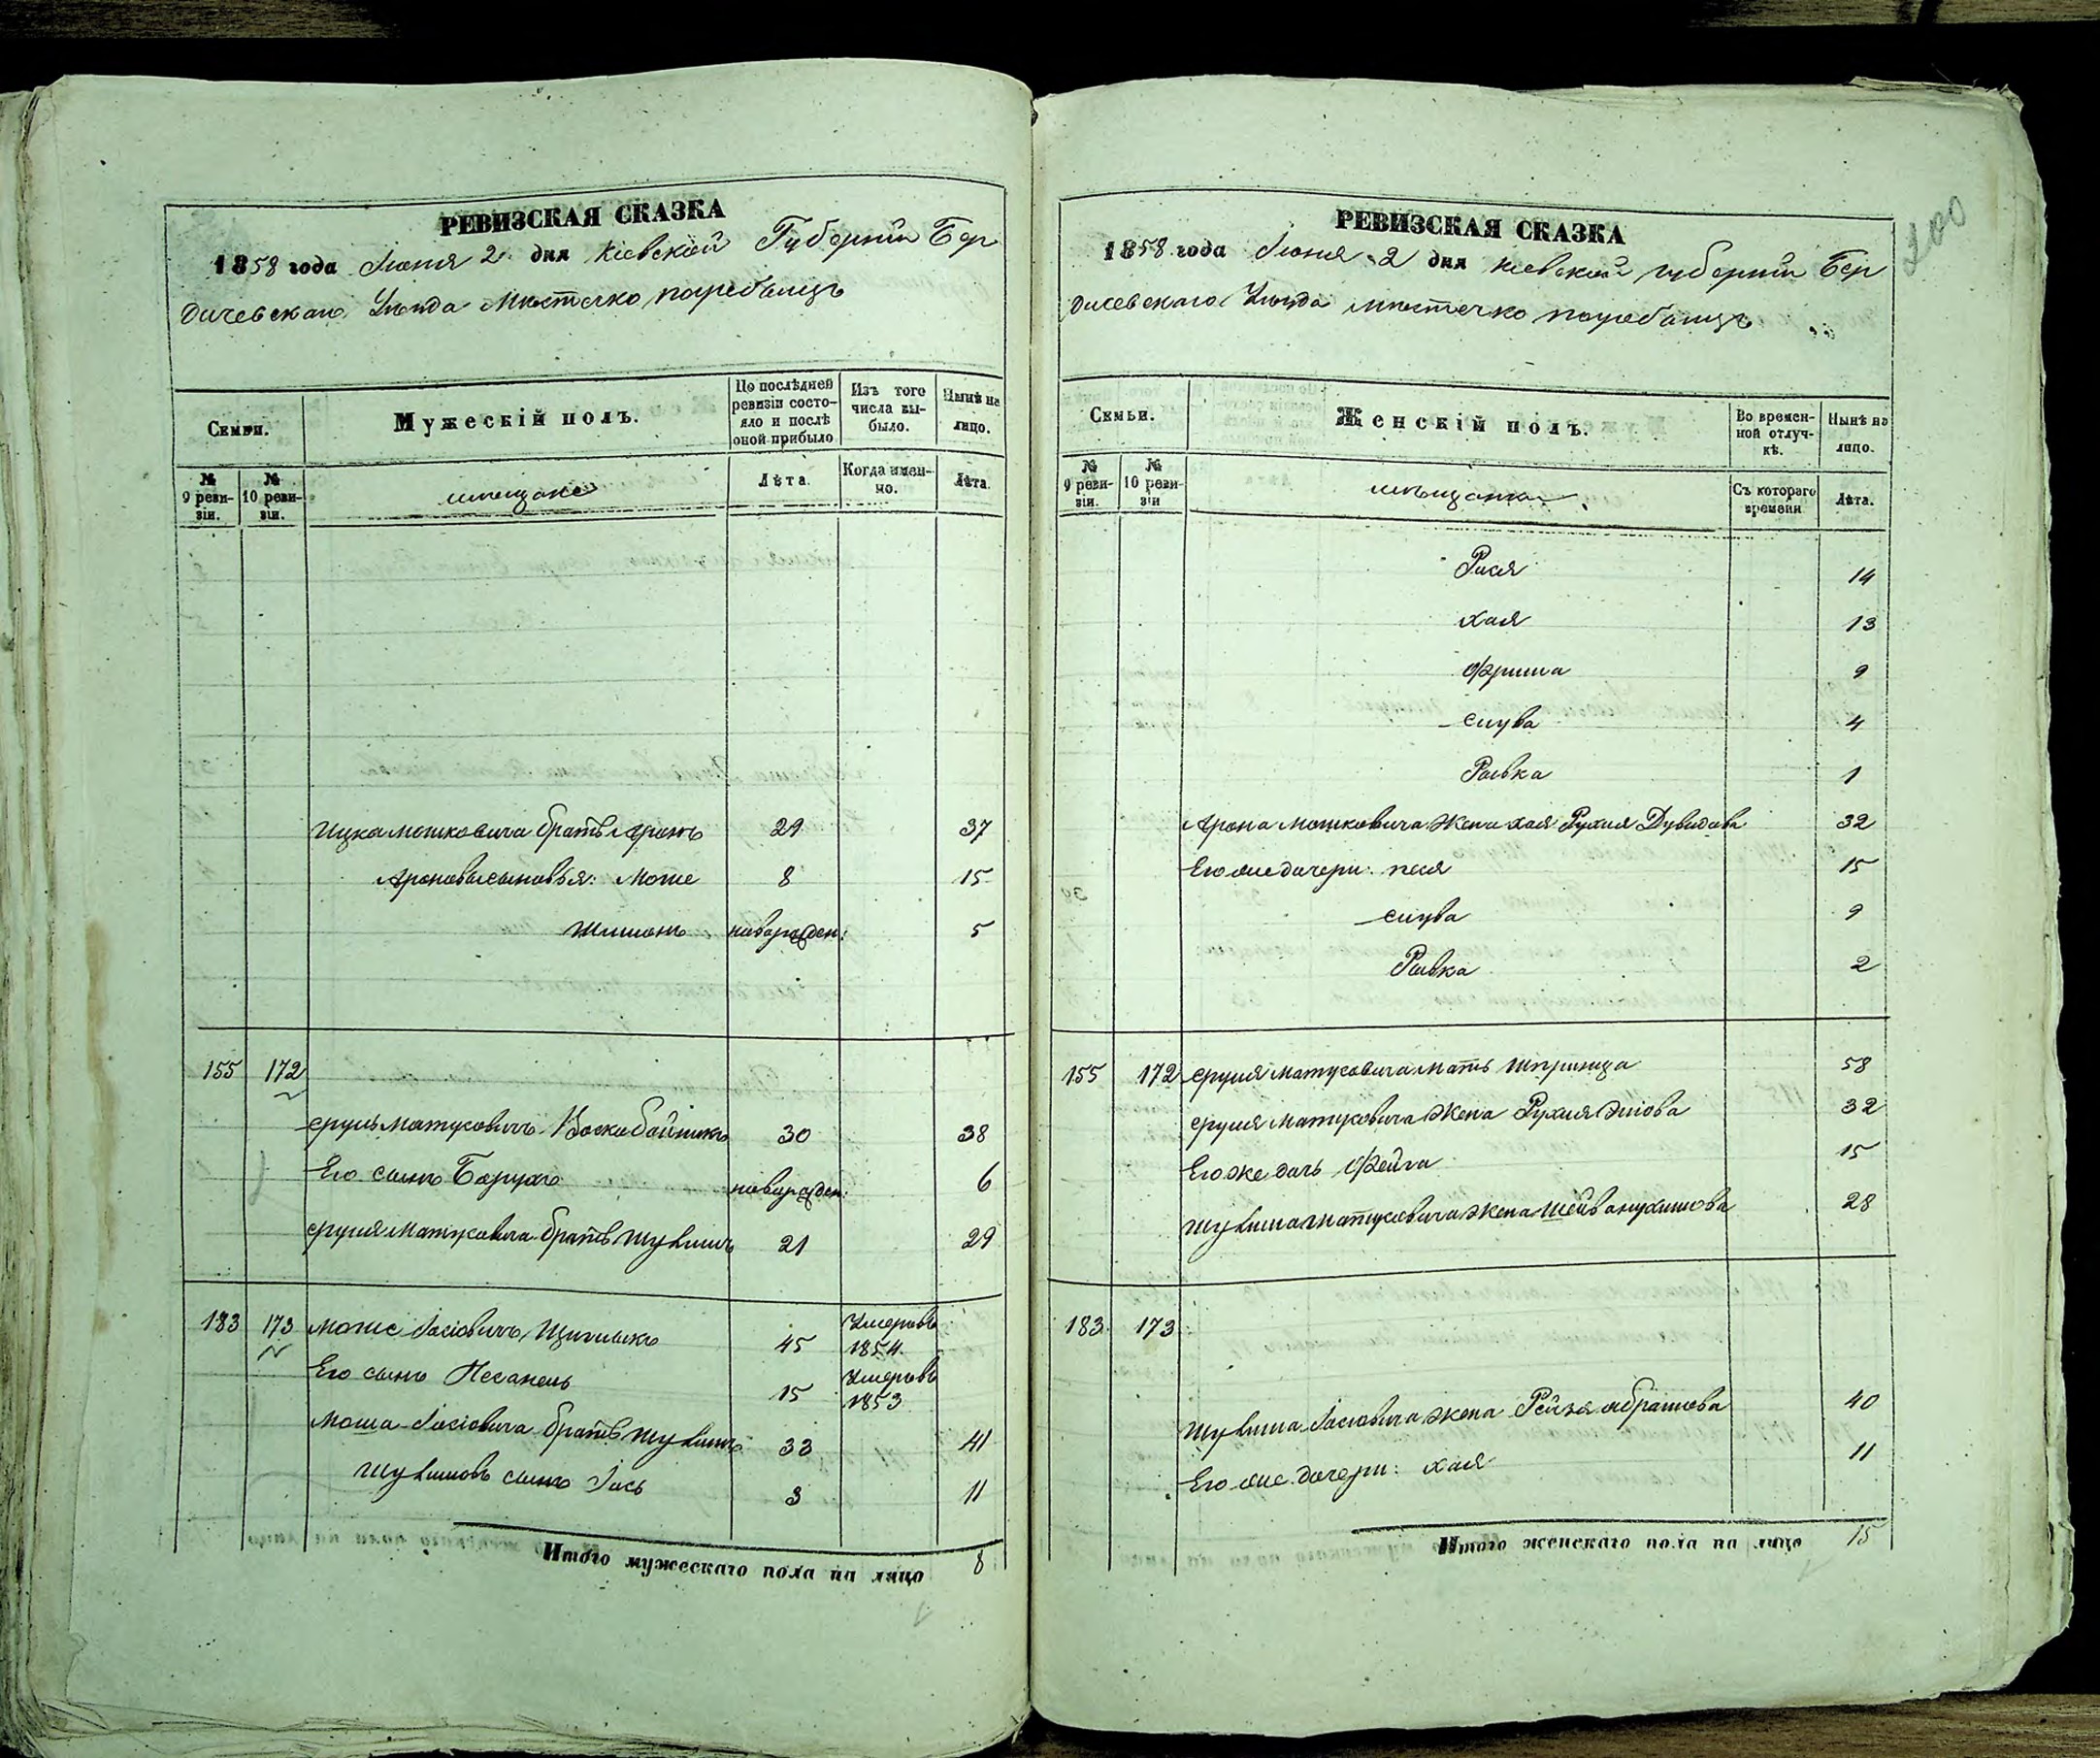 РЕВИЗСКАЯ СКАЗКА
1858 года Іюня 2 дня Кіевской Губерніи Бер
дичевскаго Уѣзда Мѣстечко погребыщъ
Семьи.
Мужескій полъ.
По послѣдней ревизіи состояло и послѣ оной прибыло
Изъ того числа выбыло.
Нынѣ на лицо.
№ 9 реви-зіи.
№ 10 реви-зіи.
мѣщане
Лѣта.
Когда имен-но.
Лѣта.
Ицка мошковича братъ Аронъ 29 37
Ароновы сыновья: Моше 8 15
новорожден: 5
155 172
Сруль Матусовичъ Воскобойникъ 30 38
Его сынъ Барухъ новорожден: 6
Сруля Матусовича братъ 21 29
183 173 Моше Іосіовичъ 45 Умеръ въ 1854
Его сынъ 15 Умеръ въ 1853
Моша Іосіовича братъ 33 41
сынъ Іось 3 11
Итого мужескаго пола на лицо 8
200
РЕВИЗСКАЯ СКАЗКА
1858 года Іюня 2 дня Кіевской губерніи Бер
дичевскаго Уѣзда мѣстечко погребыщъ
Семьи.
Женскій полъ.
Во времен-ной отлуч-кѣ.
Нынѣ на лицо.
№ 9 реви-зіи.
№ 10 реви-зіи
мѣщанки
Съ котораго времени
Лѣта.
Рися 14
Хая 13
Фрима 9
Слува 4
Ривка 1
Арона мошковича жена Хая Рухля Дувидова 32
Его же дочери: песя 15
Слува 9
Ривка 2
155 172 Сруля Матусовича мать Шпринца 58
Сруля Матусовича жена Рухля 32
Его же дочь Фейга 15
Матусовича жена 28
183 173
Іосіовича жена Рейзя Абрамова 40
Его же дочери: Хая 11
Итого женскаго пола на лицо 15